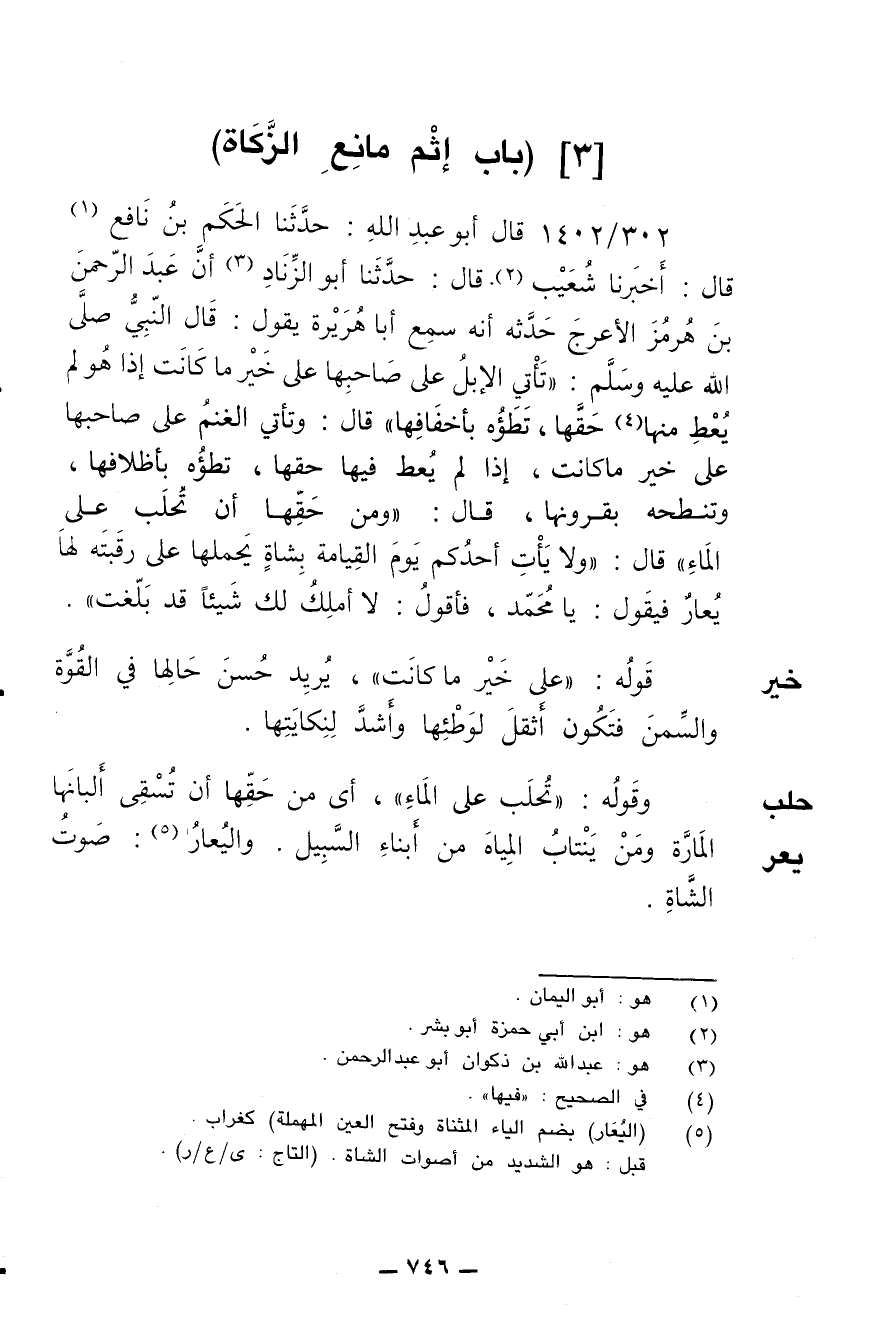 [٣] (باب إثْم مانِعِ الزَّكَاة)
١٤٠٢/٣٠٢ قال أبو عبدِ اللهِ : حدَّثَنا الحَكَم بنُ نَافع (١)
قال : أَخبَرنا شُعَيْب (٢). قال : حدَّثَنا أبو الزِّنَادِ (٣) أنَّ عَبدَ الرّحمنَ
بنَ هُرمُزَ الأعرجَ حَدَّثه أنه سمِع أبا هُرَيْرة يقول : قَال النّبيُّ صلَّى
الله عليه وسَلَّم : «تَأْتي الإبلُ على صَاحبِها على خَيْر ما كَانَت إذا هُو لم
يُعْطِ منها(٤) حَقَّها ، تَطَؤُه بأخفَافِها» قال : وتأتي الغنمُ على صاحبها
على خير ماكانت ، إذا لم يُعط فيها حقها ، تطؤُه بأظلافها ،
وتنطحه بقرونها ، قال : «ومن حَقِّها أن تُحلَب على
المَاءِ» قال : «ولا يَأْتِ أحدُكم يَومَ القِيامة بِشاةٍ يَحملها على رقبَته لهاَ
يُعارٌ فيقَول : يا مُحَمّد ، فأقولُ : لا أملِكُ لك شَيئاً قد بَلّغت» .
خير قَولُه : «على خَيْر ما كانَت» ، يُرِيد حُسنَ حَالِها في القُوَّة
والسِّمنَ فتَكُون أَثقلَ لوَطْئِها وأَشدَّ لِنِكايَتِها .
حلب وقَولُه : «تُحلَب على المَاءِ» ، أى من حَقِّها أن تُسْقِى أَلبانَها
يعر المَارَّة ومَنْ يَنْتابُ المِياهَ من أَبناءِ السَّبِيل . واليُعارُ (٥) : صَوتُ
الشَّاةِ .
(١) هو : أبو اليمان .
(٢) هو : ابن أبي حمزة أبو بشر .
(٣) هو : عبدالله بن ذكوان أبو عبدالرحمن .
(٤) في الصحيح : «فيها» .
(٥) (اليُعَار) بضم الياء المثناة وفتح العين المهملة) كغراب .
قبل : هو الشديد من أصوات الشاة . (التاج : ى/ع/ر) .
— ٧٤٦ —